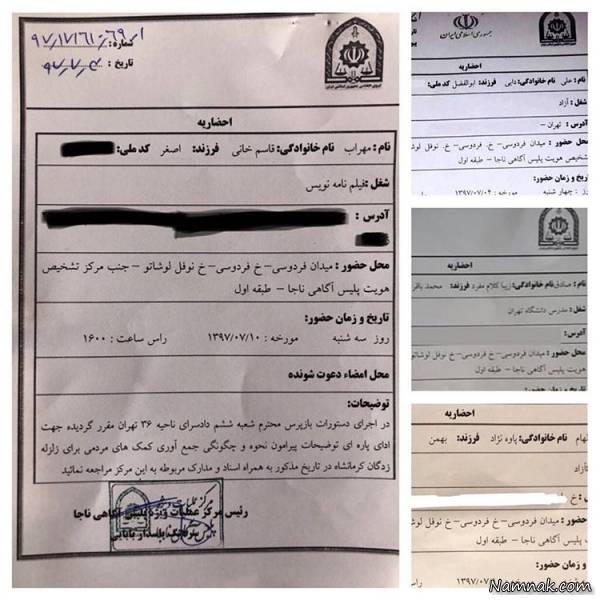 شماره:
تاریخ: ۹۷/۷/۴
نیروی انتظامی جمهوری اسلامی ایران
احضاریه
نام: مهراب نام خانوادگی: قاسم خانی فرزند: اصغر کد ملی:
شغل: فیلم نامه نویس
آدرس :
محل حضور : میدان فردوسی– خ فردوسی– خ نوفل لوشاتو – جنب مرکز تشخیص
هویت پلیس آگاهی ناجا – طبقه اول
تاریخ و زمان حضور:
روز سه شنبه مورخه : ۱۳۹۷/۰۷/۱۰ راس ساعت : ۱۶۰۰
محل امضاء دعوت شونده
توضیحات:
در اجرای دستورات بازپرس محترم شعبه ششم دادسرای ناحیه ۳۶ تهران مقرر گردیده جهت
ادای پاره ای توضیحات پیرامون نحوه و چگونگی جمع آوری کمک های مردمی برای زلزله
زدگان کرمانشاه در تاریخ مذکور به همراه اسناد و مدارک مربوطه به این مرکز مراجعه نمائید
رئیس مرکز عملیات ویژه پلیس آگاهی ناجا
سرهنگ پاسدار بابایی
جمهوری اسلامی ایران
احضاریه
نام : علی نام خانوادگی: دایی فرزند: ابوالفضل کد ملی:
شغل :
آزاد
آدرس : تهران –
محل حضور : میدان فردوسی– خ. فردوسی– خ. نوفل لوشا
تشخیص هویت پلیس آگاهی ناجا – طبقه اول
تاریخ و زمان حضور:
روز : چهار شنبه مورخه : ۱۳۹۷/۰۷/۰۴
احضاریه
نام : صادق نام خانوادگی: زیبا کلام مفرد فرزند: محمد باقر
شغل :
مدرس دانشگاه تهران
آدرس:
محل حضور : میدان فردوسی– خ فردوسی– خ نوفل لوشاتو
هویت پلیس آگاهی ناجا – طبقه اول
احضاریه
الهام نام خانوادگی: پاوه نژاد فرزند: بهمن
آزاد
خ
حضور : میدان فردوسی– خ فردوسی– خ نوفل لوشاتو
پلیس آگاهی ناجا – طبقه اول
و زمان حضور:
مورخه : ۱۳۹۷/۰۷ راس
Namnak.com